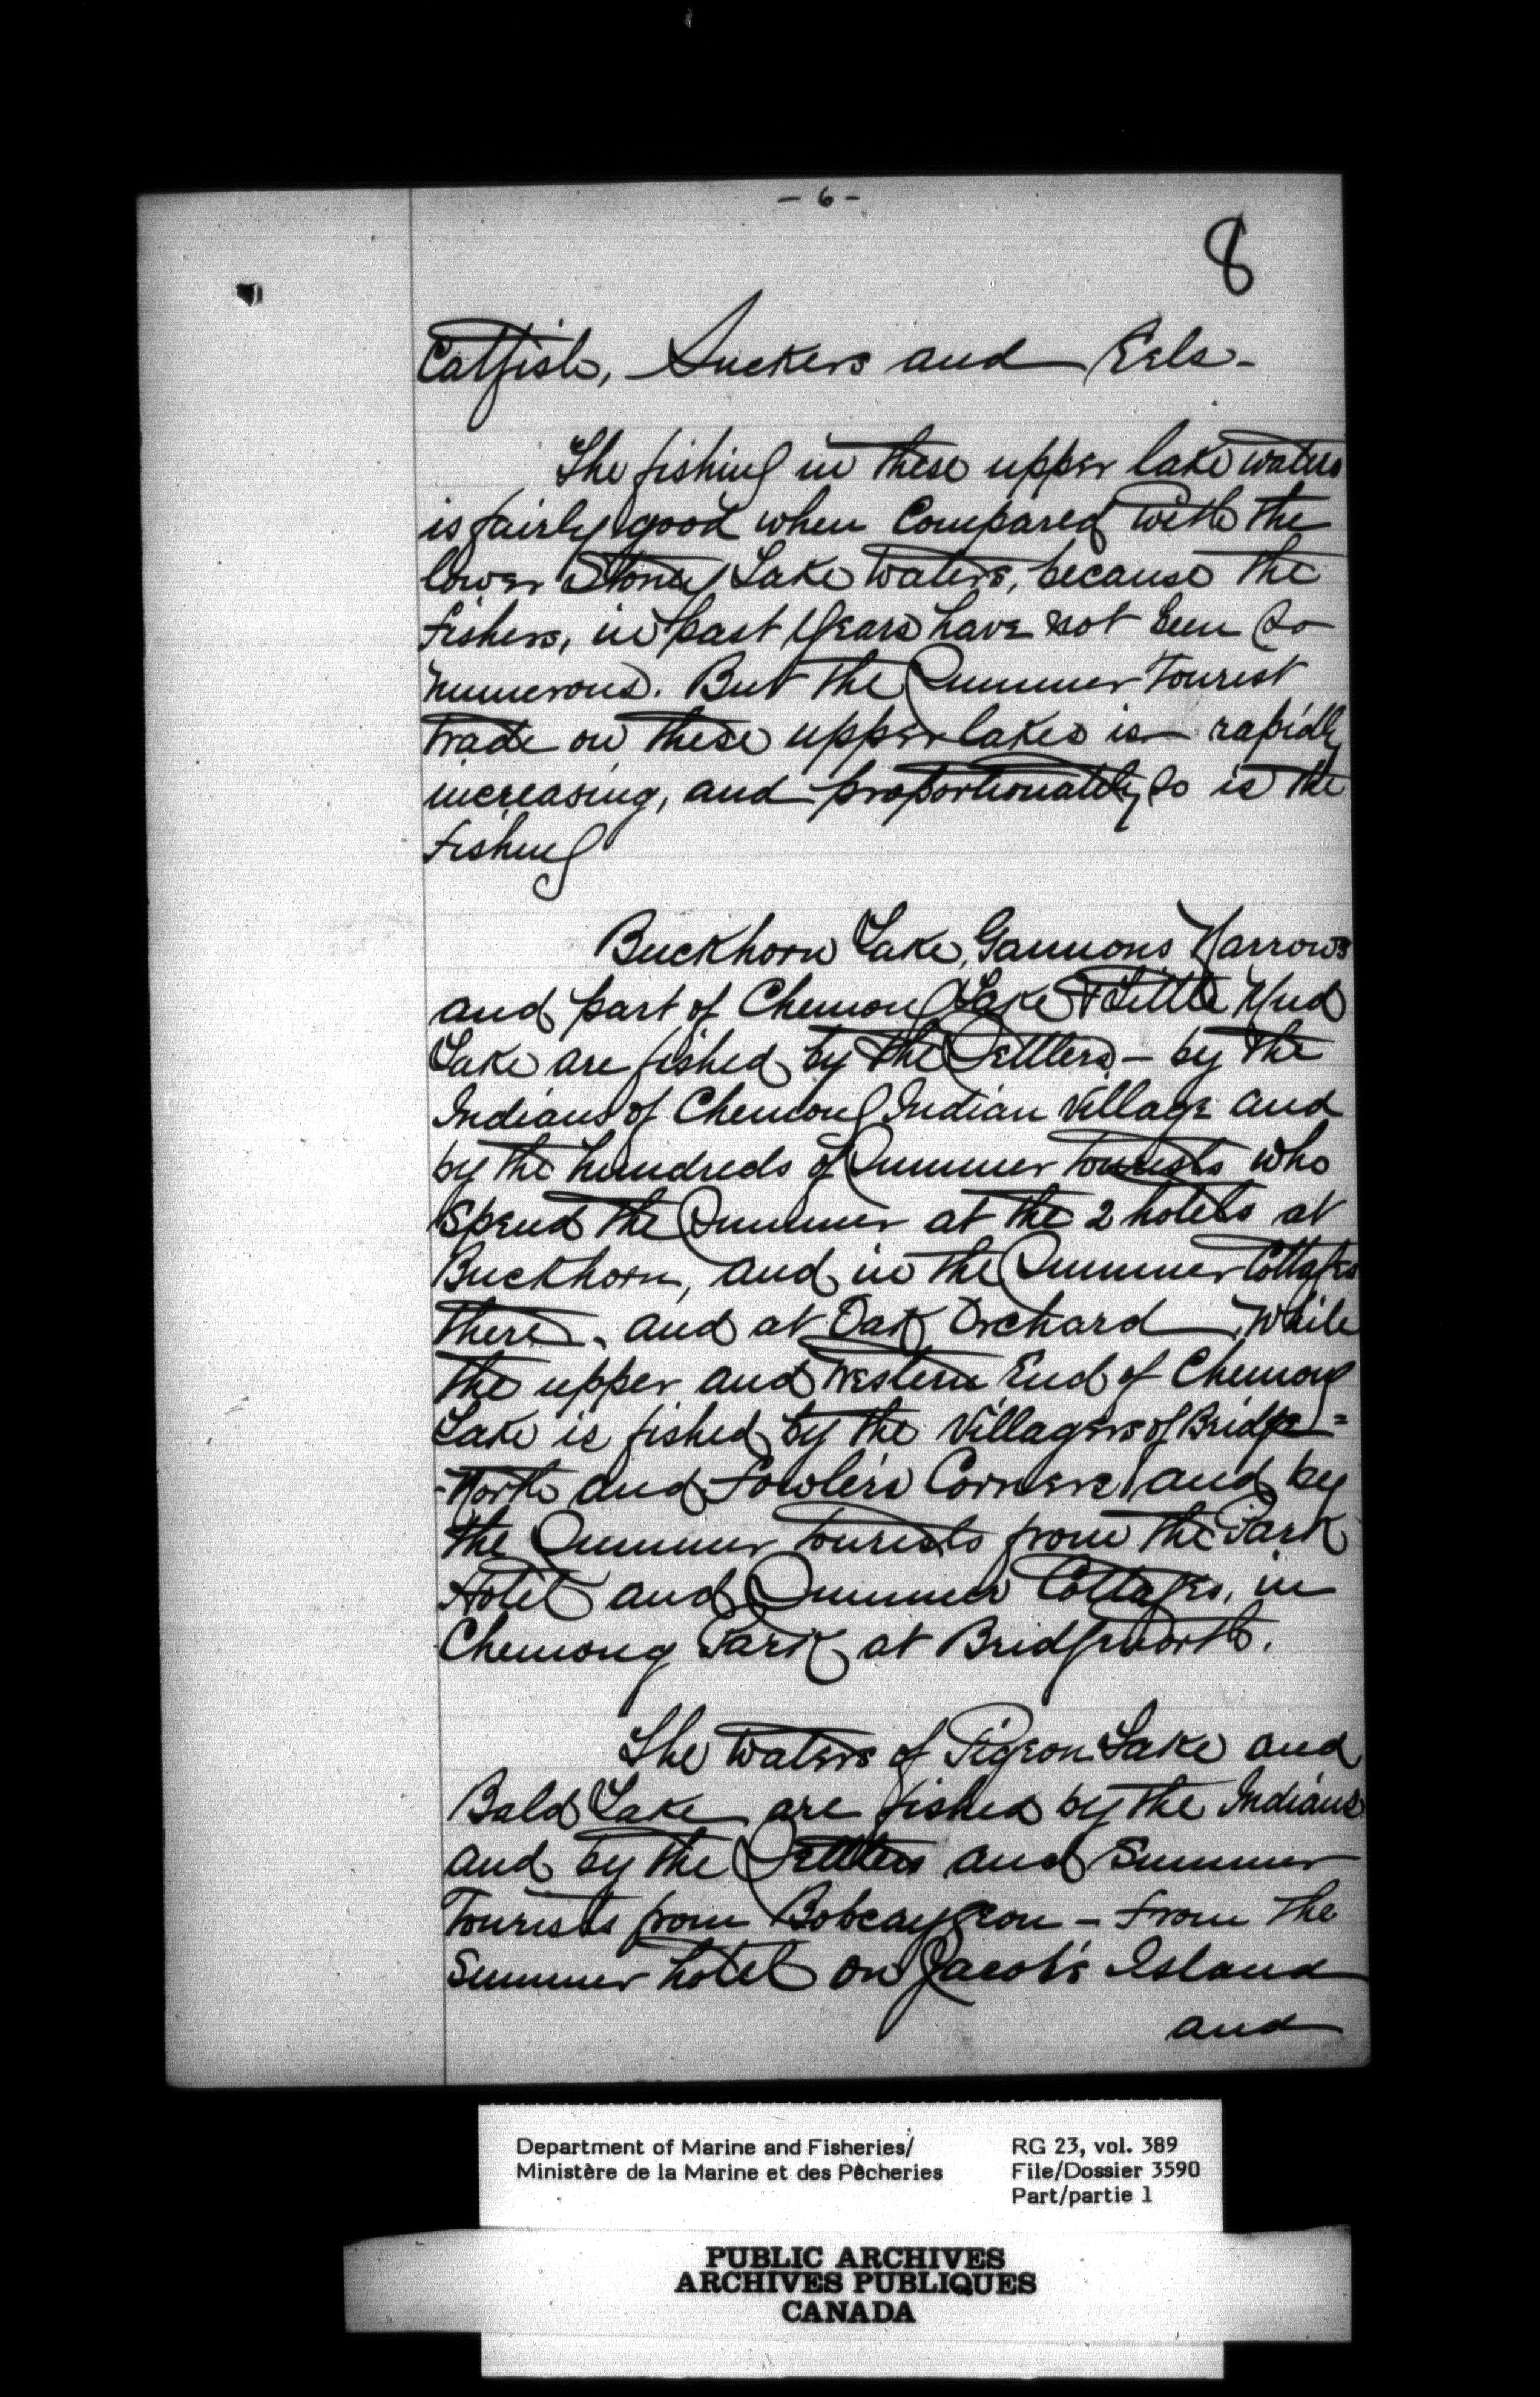 - 6 -
8
Catfish, Suckers and Eels-
The fishing in these upper lake waters
is fairly good when Compared with the
lower Stoney Lake waters, because the
fishers, in past years have not been so
numerous. But the Summer Tourist
trade on these upper lakes is rapidly
increasing, and proportionately so is the
fishing
Buckhorn Lake, Gannons Narrows
and part of Chemong Lake & Little Mud
Lake are fished by the Settlers - by the
Indians of Chemong Indian Village and
by the hundreds of Summer tourists who
spend the Summer at the 2 hotels at
Buckhorn, and in the Summer Cottages
there, and at Oak Orchard, while
the upper and western End of Chemong
Lake is fished by the Villagers of Bridge=
-North and Fowler's Corners and by
the Summer tourists from the Park
Hotel and Summer Cottages, in
Chemong Park at Bridgenorth.
The waters of Pigeon Lake and
Bald Lake are fished by the Indians
and by the Settlers and Summer
Tourists from Bobcaygeon - from the
Summer hotel on Jacob's Island
and
Department of Marine and Fisheries/
Ministère de la Marine et des Pêcheries
RG 23, vol. 389
File/Dossier 3590
Part/partie 1
PUBLIC ARCHIVES
ARCHIVES PUBLIQUES
CANADA